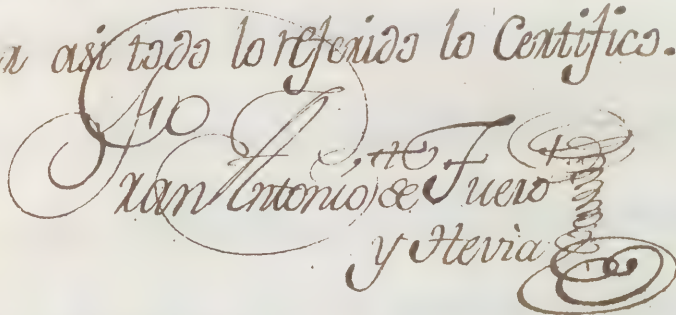 asi todo lo referido lo Certifico.
Fran Antonio de Fuero
y Hevia